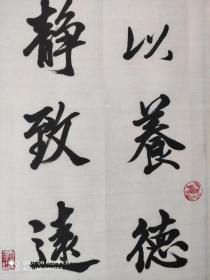 以養德
静致遠